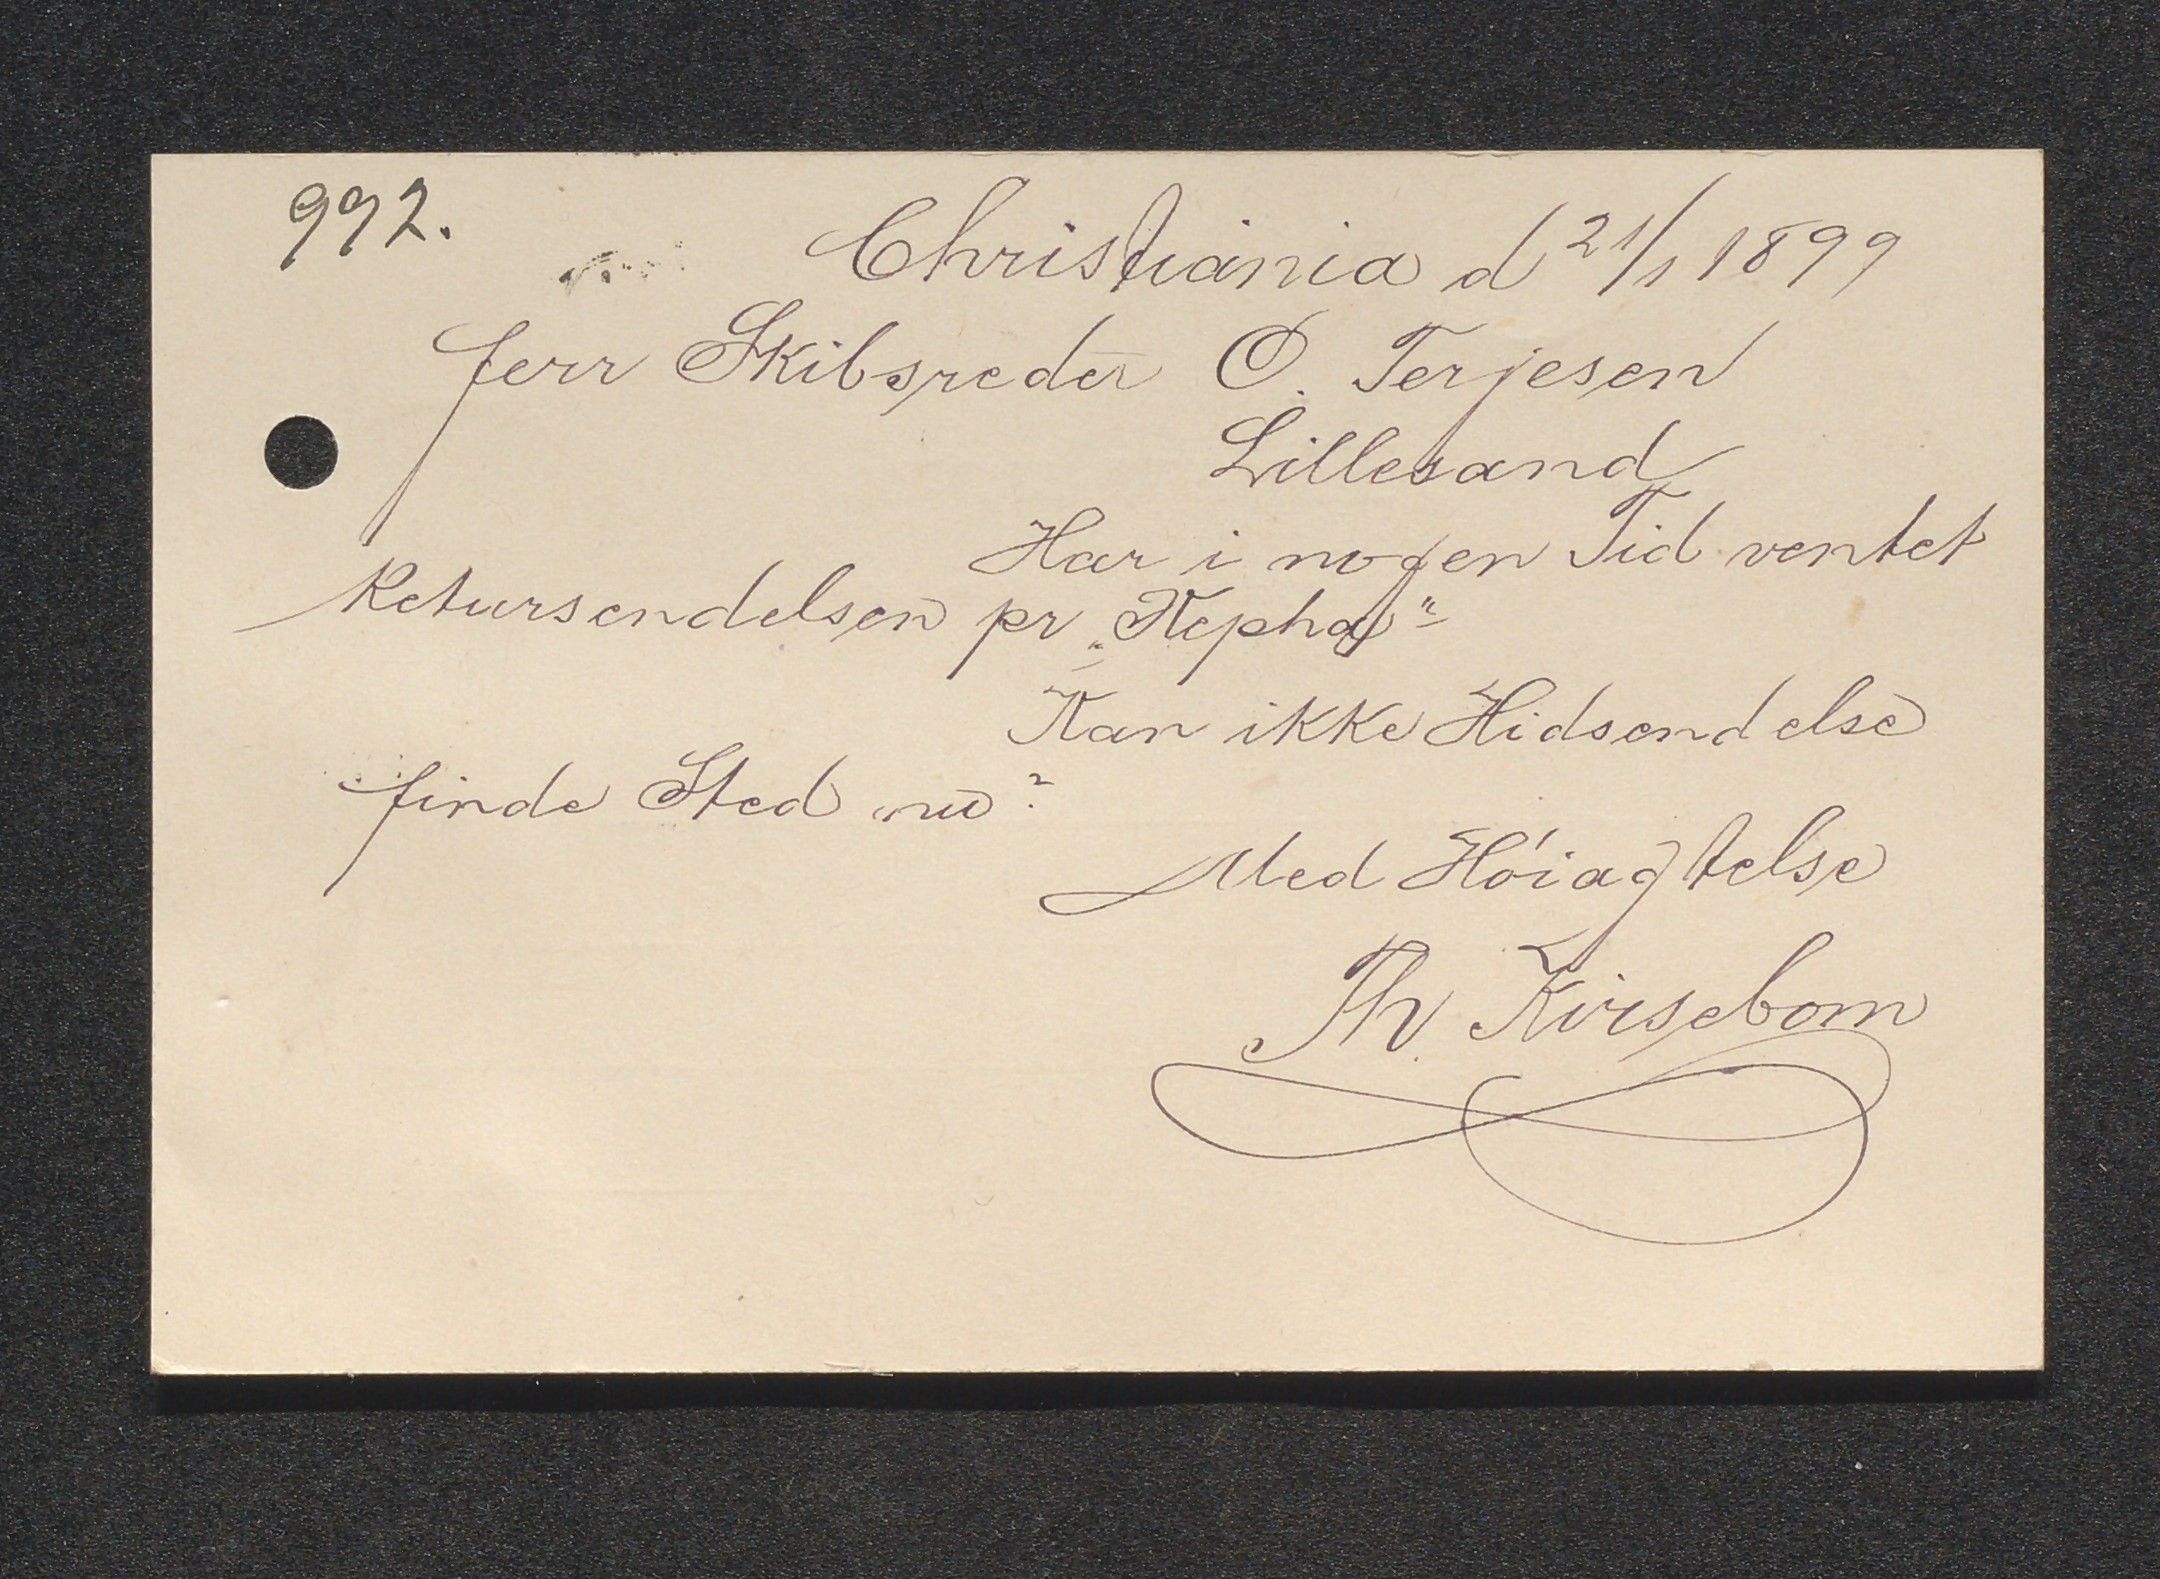 992.
Christiania d 21/1 1899
Herr Skibsreder O. Terjesen
Lillesand
Har i nogen Tid ventet
Retursendelsen pr „Kepha"
Kan ikke Hidsendelse
finde Sted nu?
Med Høiagtelse
Th. Kirsebom